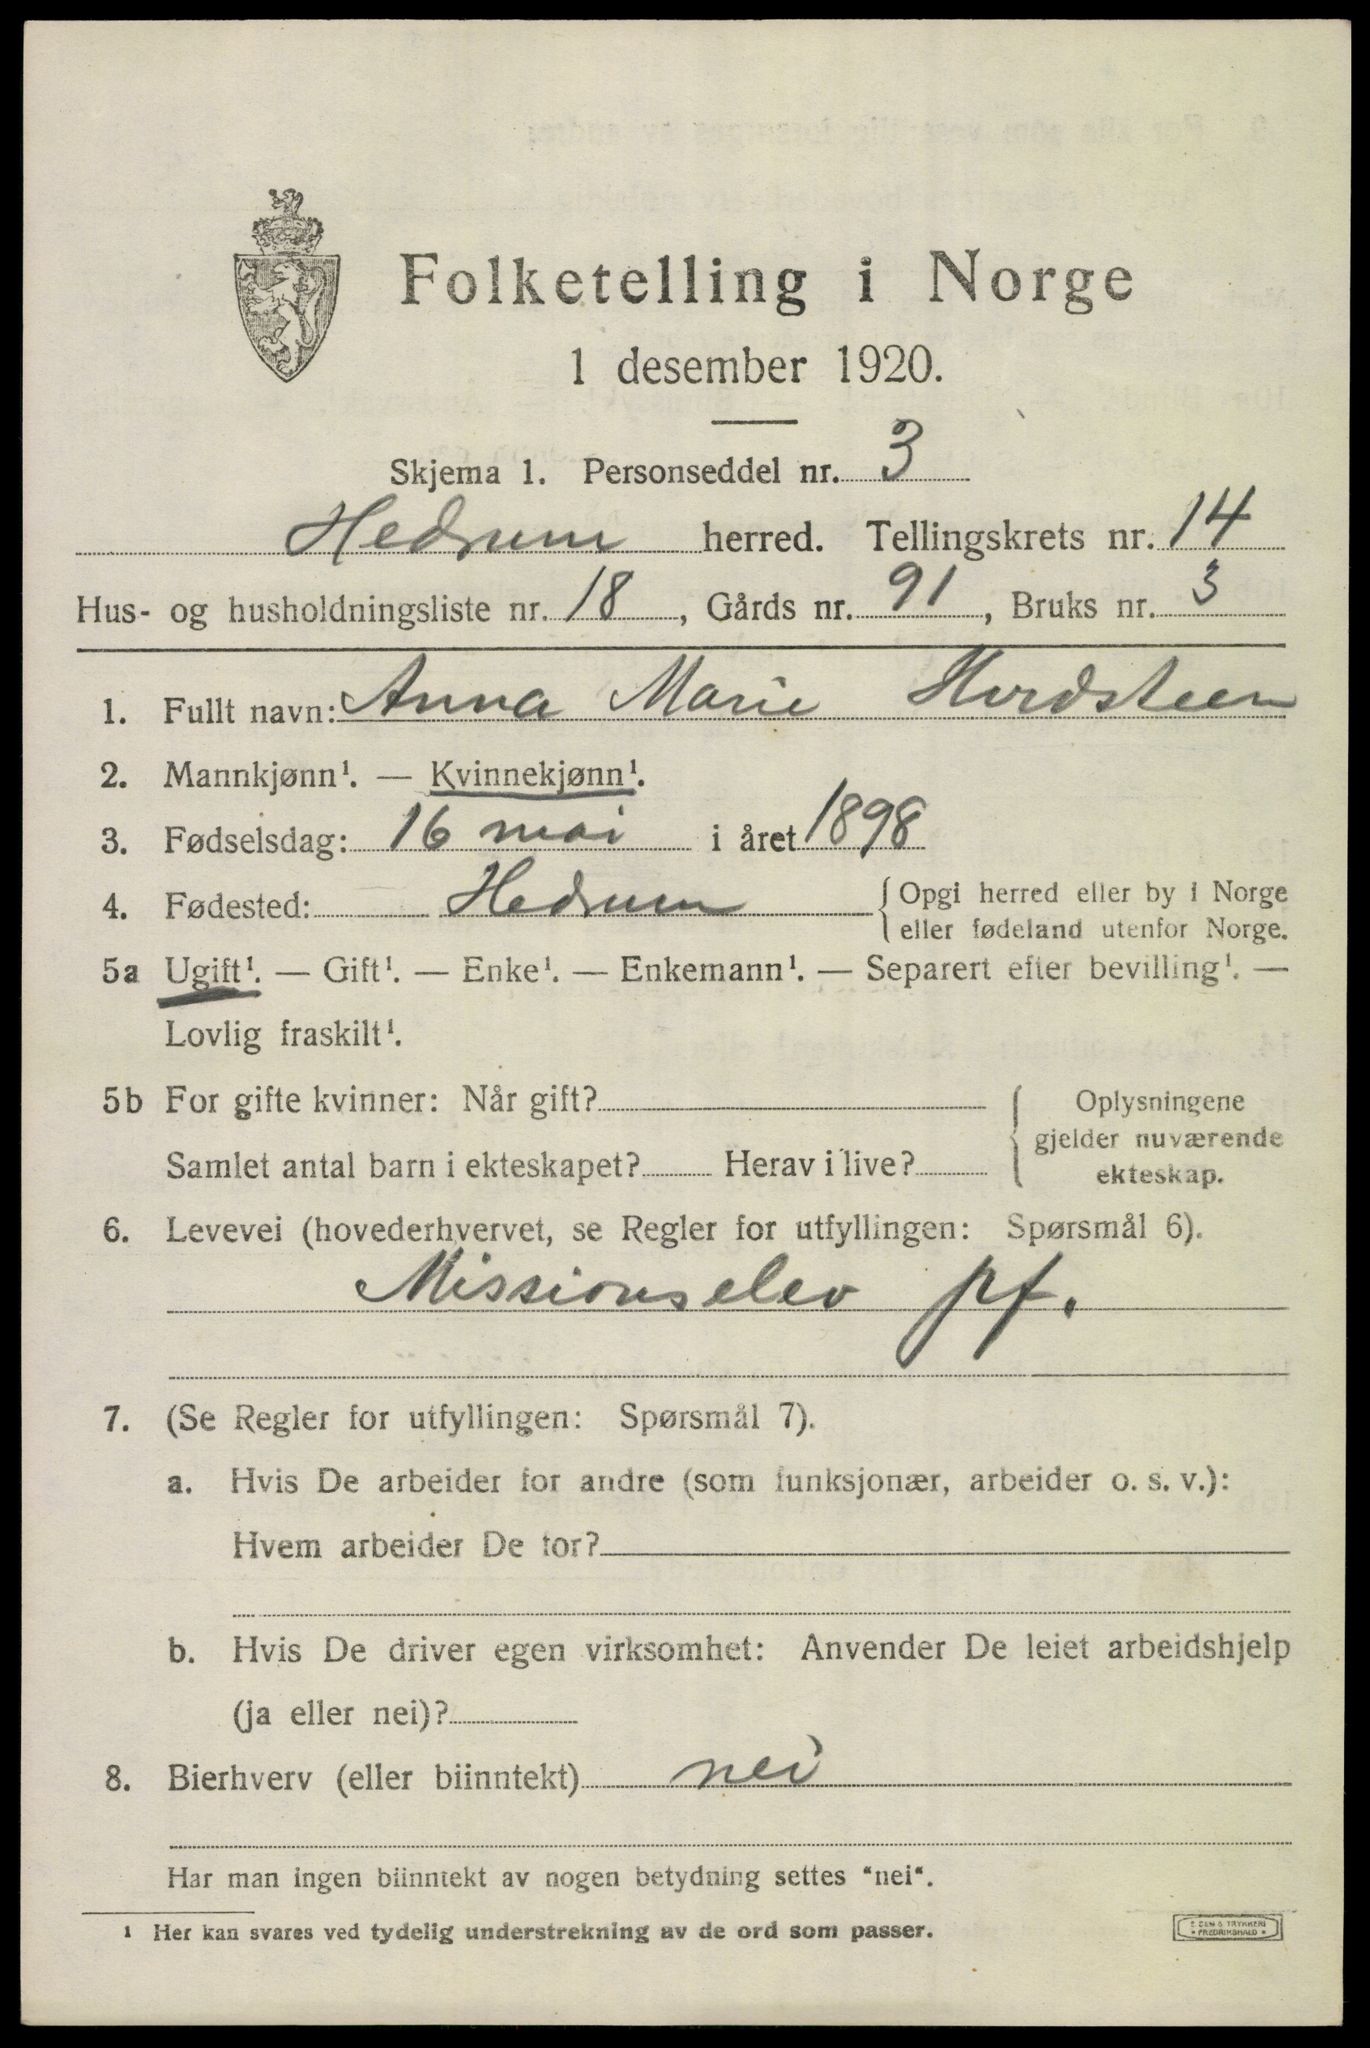 Folketelling i Norge
1 desember 1920.
Skjema 1. Personseddel nr. 3
Hedrum herred. Tellingskrets nr. 14
Hus- og husholdningsliste nr. 18, Gårds nr. 91, Bruks nr. 3
1. Fullt navn: Anna Marie Hvidsteen
2. Mannkjønn¹. — Kvinnekjønn¹.
3. Fødselsdag: 16 mai i året 1898
4. Fødested: Hedrum {Opgi herred eller by i Norge
eller fødeland utenfor Norge.
5a Ugift¹. — Gift¹. — Enke¹. — Enkemann¹. — Separert efter bevilling¹. —
Lovlig fraskilt¹.
5b For gifte kvinner: Når gift? Oplysningene
gjelder nuværende
Samlet antal barn i ekteskapet? Herav i live? ekteskap.
6. Levevei (hovederhvervet, se Regler for utfyllingen: Spørsmål 6).
Missionselev pf.
7. (Se Regler for utfyllingen: Spørsmål 7).
a. Hvis De arbeider for andre (som funksjonær, arbeider o. s. v.):
Hvem arbeider De for?
b. Hvis De driver egen virksomhet: Anvender De leiet arbeidshjelp
(ja eller nei)?
8. Bierhverv (eller biinntekt) nei
Har man ingen biinntekt av nogen betydning settes "nei".
¹ Her kan svares ved tydelig understrekning av de ord som passer.
TRYKKERI
• FREDRIKSHALD •